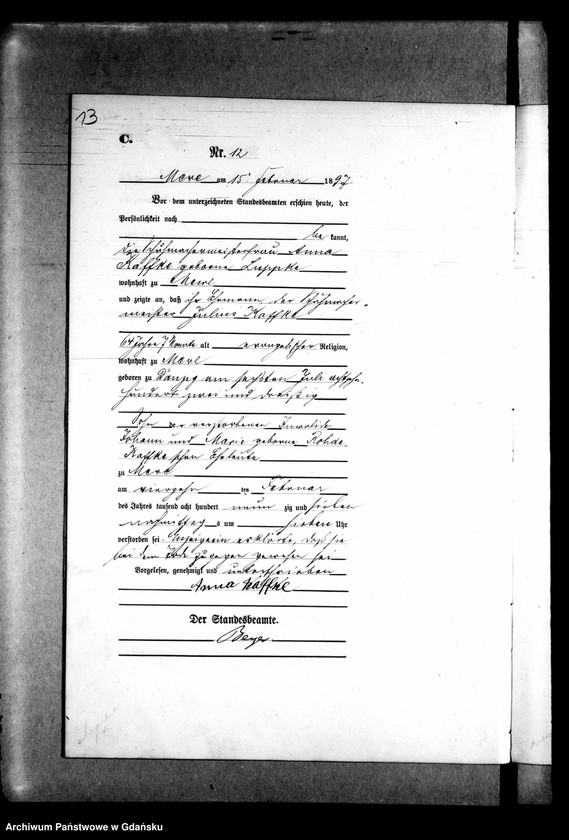 13
C.
Nr. 12
Mewe am 15. Februar 1897
Vor dem unterzeichneten Standesbeamten erschien heute, der
Persönlichkeit nach
be kannt,
die Schuhmachermeisterfrau Anna
Kaffke geborene Luppke
wohnhaft zu Mewe
und zeigte an, daß ihr Ehemann der Schuhmacher-
meister Julius Kaffke
64 Jahre 7 Monate alt evangelischer Religion,
wohnhaft zu Mewe
geboren zu Danzig am sechsten Juli achtzehn-
hundert zwei und dreißig
Sohn der verstorbenen Invalide
Johann und Marie geborene Rohde
Kaffke'schen Eheleute
zu Mewe
am vierzehn ten Februar
des Jahres tausend acht hundert neun zig und sieben
nachmittag s um sieben Uhr
verstorben sei. Anzeigerin erklärte, daß sie
bei dem Tode zugegen gewesen sei
Vorgelesen, genehmigt und unterschrieben
Anna Kaffke
Der Standesbeamte.
Beyer
Archiwum Państwowe w Gdańsku